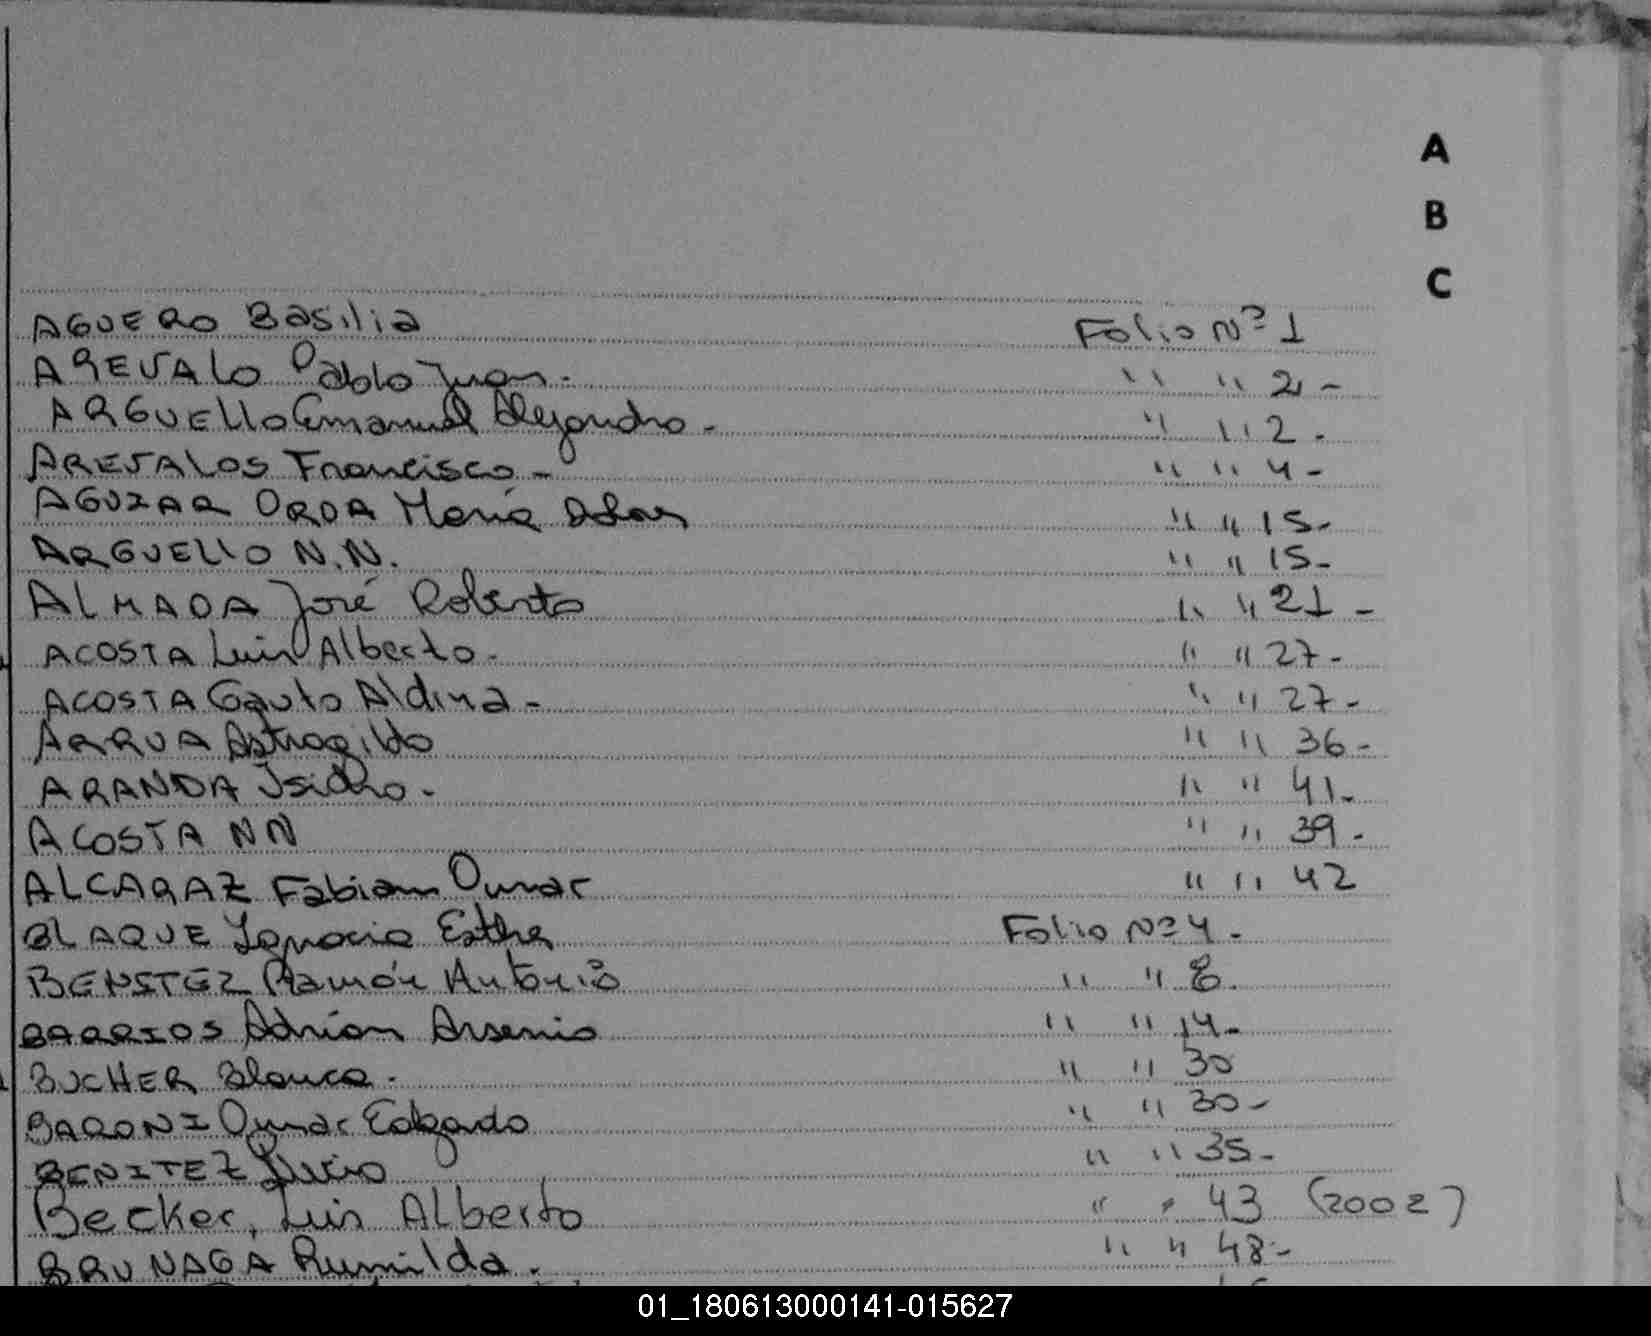 A
B
C
AGUERO Basilia Folio Nº 1
AREVALO Pablo Juan. " " 2 -
ARGUELLO Emanuel Alejandro. " " 2.
AREVALOS Francisco - " " 4 -
AGUIAR ORDA María " " 15-
ARGUELLO N.N. " " 15-
ALMADA José Roberto " " 21 -
ACOSTA Luis Alberto. " " 27-
ACOSTA Gauto Aldina - " " 27-
ARRUA Astrogildo " " 36-
ARANDA Isidro. " " 41-
ACOSTA NN " " 39.
ALCARAZ Fabian Omar " " 42
BLAQUE Ignacia Esther Folio Nº 4.
BENITEZ Ramón Antonio " " 8.
BARRIOS Adrián Arsenio " " 14-
BUCHER Blanca. " " 30
BARONI Omar Edgardo " " 30-
BENITEZ Lucio " " 35-
Becker, Luis Alberto " " 43 (2002)
BRUNAGA Rumilda. " " 48-
01_180613000141-015627